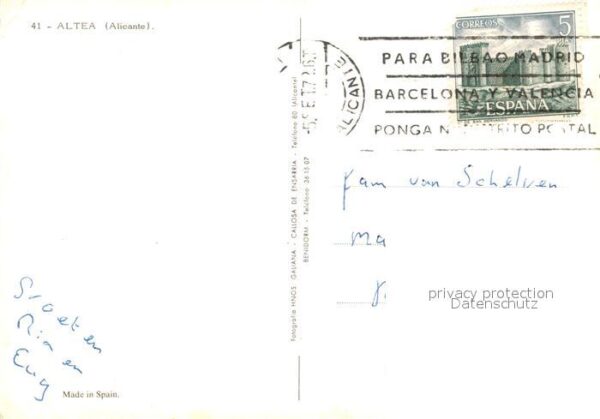 41 - ALTEA (Alicante).
CORREOS 5
ESPAÑA
PARA BILBAO MADRID
BARCELONA Y VALENCIA
PONGA N DISTRITO POSTAL
ALICANTE
Fotografía HNOS. GALIANA - CALLOSA DE ENSARRIA - Teléfono 80 (Alicante)
BENIDORM - Teléfono 36.15.07
Fam van Schelven
Ma
privacy protection
Datenschutz
Groeten
Ria en
Eug
Made in Spain.